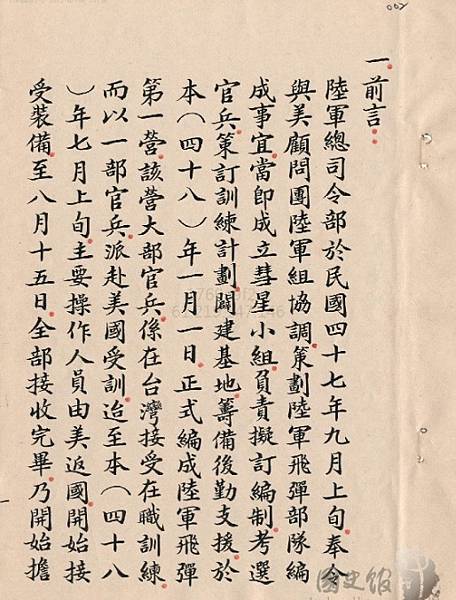 002
一、前言：
陸軍總司令部於民國四十七年九月上旬奉令
與美顧問團陸軍組協調策劃陸軍飛彈部隊編
成事宜當即成立彗星小組負責擬訂編制考選
官兵策訂訓練計劃闢建基地籌備後勤支援於
本（四十八）年一月一日正式編成陸軍飛彈
第一營該營大部官兵係在台灣接受在職訓練
而以一部官兵派赴美國受訓迨至本（四十八
）年七月上旬主要操作人員由美返國開始接
受裝備至八月十五日全部接收完畢乃開始擔
國史館